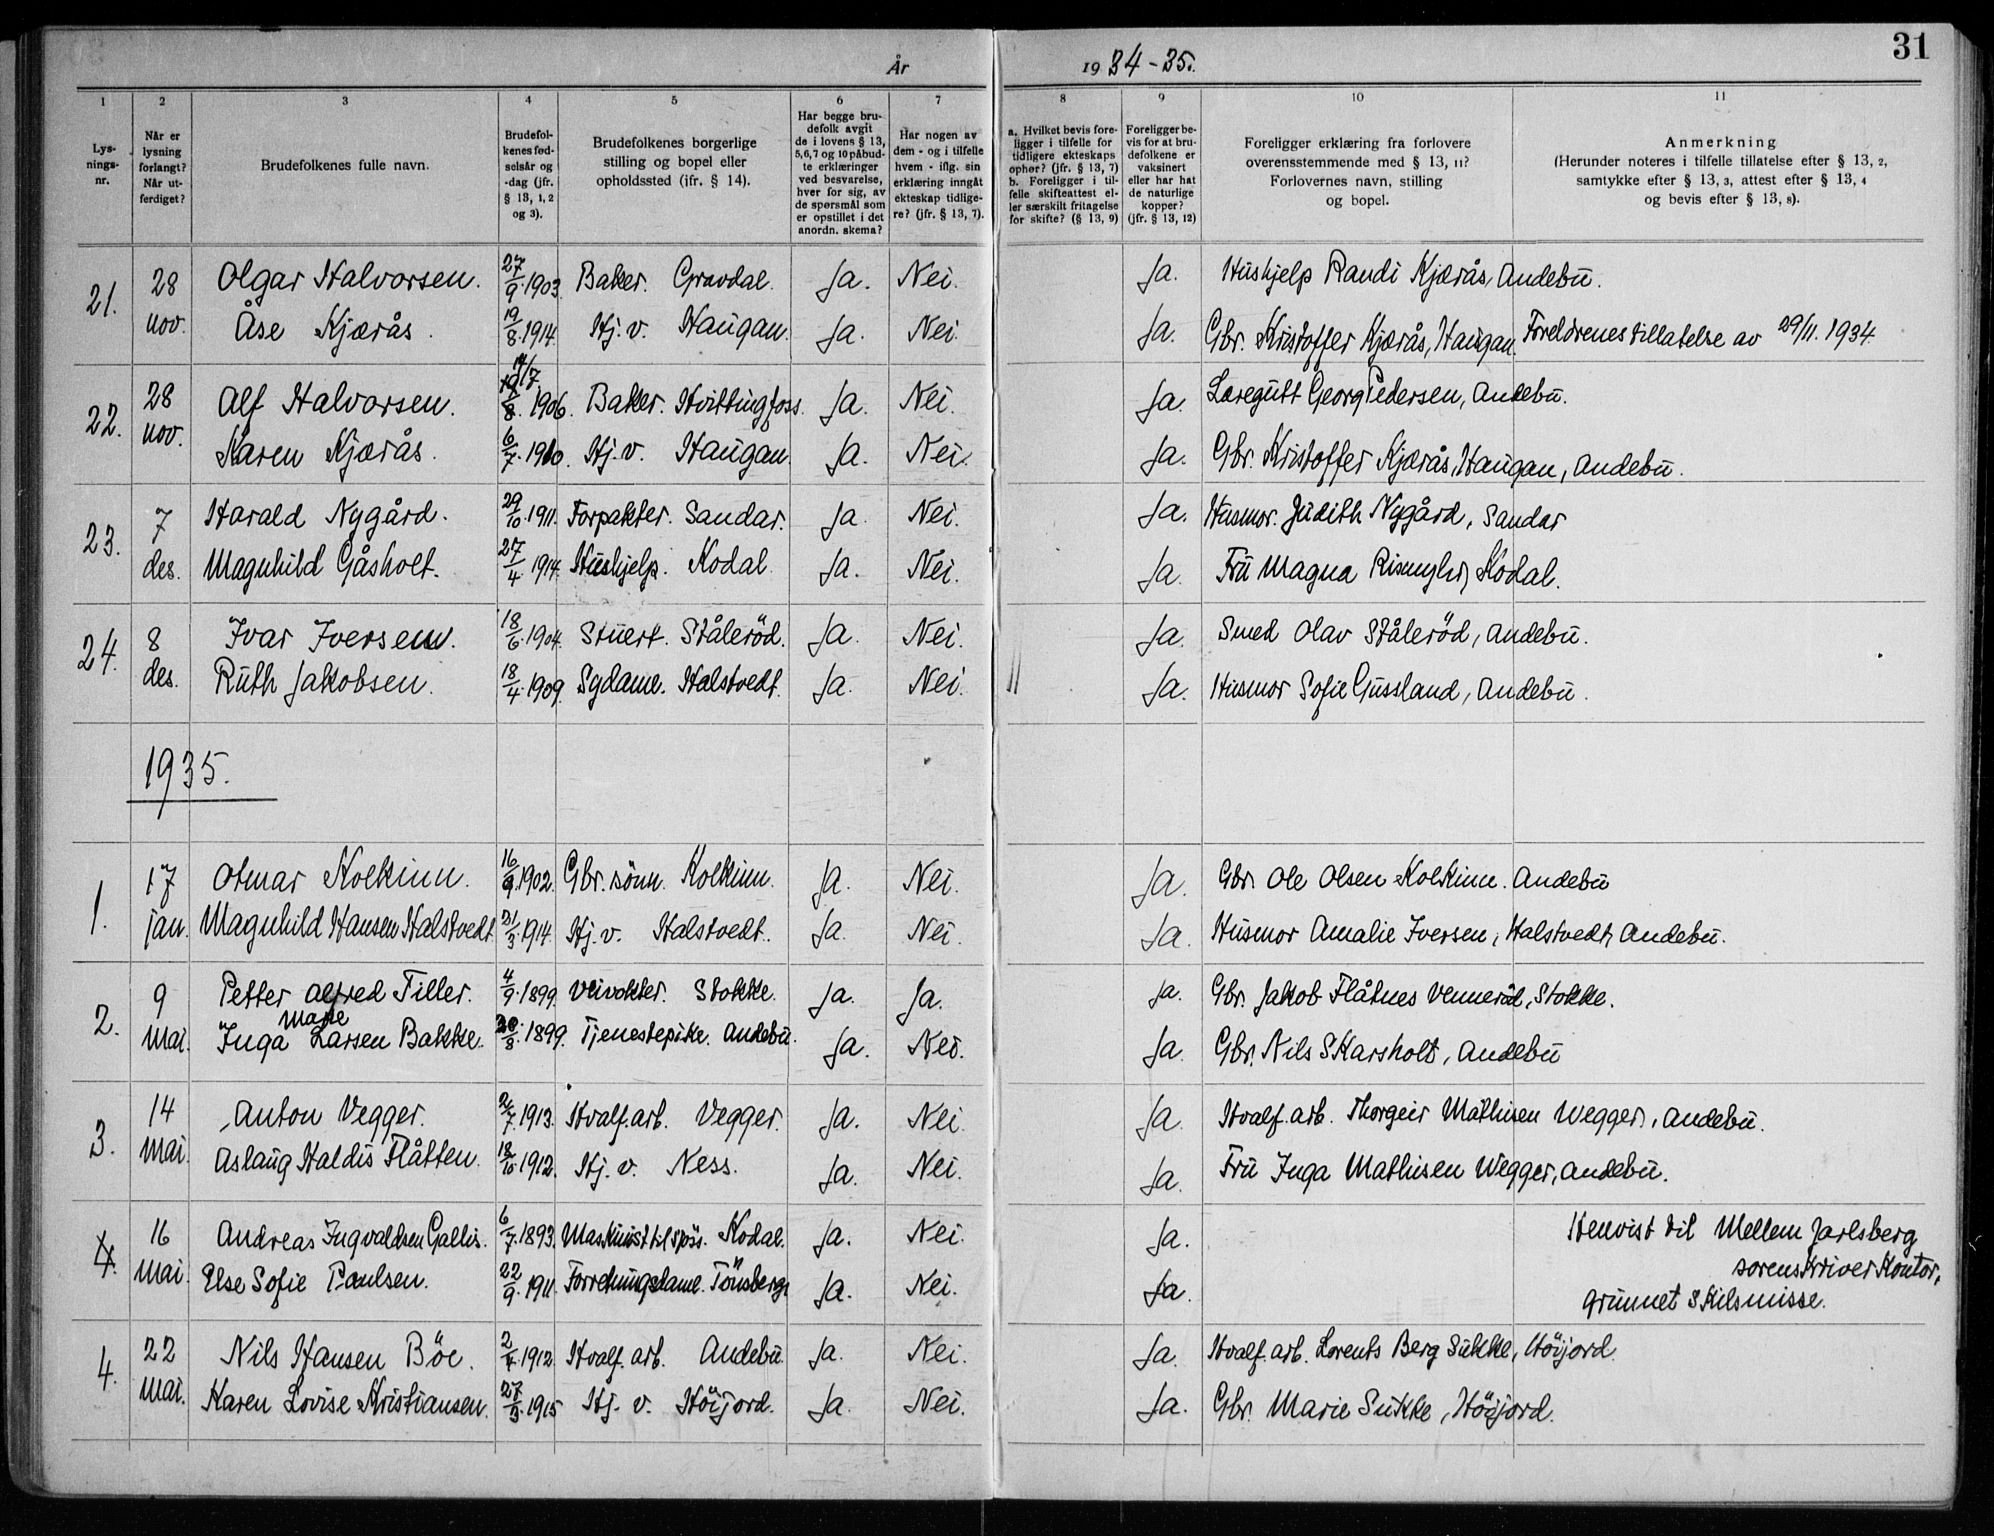 År 1934-35.
31
1 2 3 4 5 6 7 8 9 10 11
Lysningsnr.
Når er lysning forlangt? Når utferdiget?
Brudefolkenes fulle navn.
Brudefolkenes fødselsår og -dag (jfr. § 13, 1, 2 og 3).
Brudefolkenes borgerlige stilling og bopel eller opholdssted (jfr. § 14).
Har begge brudefolk avgit de i lovens § 13, 5, 6, 7 og 10 påbudte erklæringer ved besvarelse, hver for sig, av de spørsmål som er opstillet i det anordn. skema?
Har nogen av dem - og i tilfelle hvem - iflg. sin erklæring inngått ekteskap tidligere? (jfr. § 13, 7).
a. Hvilket bevis foreligger i tilfelle for tidligere ekteskaps ophør? (jfr. § 13, 7) b. Foreligger i tilfelle skifteattest eller særskilt fritagelse for skifte? (§ 13, 9)
Foreligger bevis for at brudefolkene er vaksinert eller har hat de naturlige kopper? (jfr. § 13, 12)
Foreligger erklæring fra forlovere overensstemmende med § 13, 11? Forlovernes navn, stilling og bopel.
Anmerkning (Herunder noteres i tilfelle tillatelse efter § 13, 2, samtykke efter § 13, 3, attest efter § 13, 4 og bevis efter § 13, 8).
21. 28 nov. Olgar Halvorsen. 27/9 1903. Baker. Gravdal. Ja. Nei. Ja. Hushjelp Randi Kjærås, Andebu.
Åse Kjærås. 19/8 1914. Hj. v. Haugan. Ja. Nei. Ja. Gbr. Kristoffer Kjærås, Haugan. Foreldrenes tillatelse av 29/11. 1934
22. 28 nov. Alf Halvorsen. 1906. Baker. Hvittingfoss. Ja. Nei. Ja. Læregutt Georg Pedersen, Andebu.
Karen Kjærås. 6/7 1910. Hj. v. Haugan. Ja. Nei. Ja. Gbr. Kristoffer Kjærås, Haugan, Andebu.
23. 7 des. Harald Nygård. 29/10 1911. Forpakter. Sandar. Ja. Nei. Ja. Husmor. Judith Nygård, Sandar
Magnhild Gåsholt. 27/4 1914. Hushjelp. Kodal. Ja. Nei. Ja. Fru Magna Kodal.
24. 8 des. Ivar Iversen. 18/6 1904. Stuert. Stålerød. Ja. Nei. Ja. Smed Olav Stålerød, Andebu.
Ruth Jakobsen. 18/4 1909. Sydame. Halstvedt. Ja. Nei. Ja. Husmor Sofie Gussland, Andebu.
1935.
1. 17 jan. Otmar Kolkinn. 1902. Gbr. sönn. Kolkinn. Ja. Nei. Ja. Gbr. Ole Olsen Kolkinn. Andebu
Magnhild Hansen Halstvedt. 1914. Hj. v. Halstvedt. Ja. Nei. Ja. Husmor Amalie Iversen, Halstvedt, Andebu.
2. 9 mai. Petter Alfred Tiller. 4/9 1899. Veivokter. Stokke. Ja. Ja. Ja. Gbr. Jakob Flåtnes Venneröd, Stokke.
Marie
Inga Larsen Bakke. 1899. Tjenestepike. Andebu. Ja. Nei. Ja. Gbr. Nils Skarsholt, Andebu
3. 14 mai. Anton Vegger. 2/7 1913. Hvalf. arb. Vegger. Ja. Nei. Ja. Hvalf. arb. Thorgeir Mathisen Wegger, Andebu.
Aslaug Haldis Flåtten. 18/10 1912. Hj. v. Ness. Ja. Nei. Ja. Fru Inga Mathisen Wegger, Andebu.
4. 16 mai. Andreas Ingvaldsen Gallis. 6/7 1893. Maskinist til sjös. Kodal. Ja. Nei. Ja. Henvist til Mellem Jarlsberg
sorenskriverkontor,
Else Sofie Paulsen. 22/9 1911. Forretningsdame. Tönsberg. Ja. Nei. Ja.
grunnet skilsmisse.
4. 22 mai. Nils Hansen Böe. 1912. Hvalf. arb. Andebu. Ja. Nei. Ja. Hvalf. arb. Lorents Berg Sukke, Höijord.
Karen Lovise Kristiansen. 27/3 1915 Hj. v. Höijord. Ja. Nei. Ja. Gbr. Marie Sukke, Höijord.